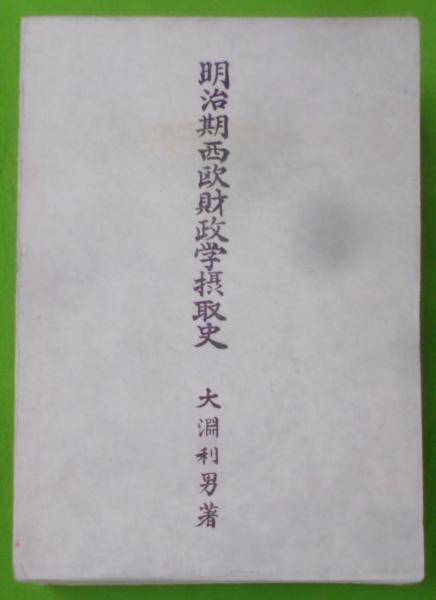 明治期西欧財政学摂取史
大淵利男著